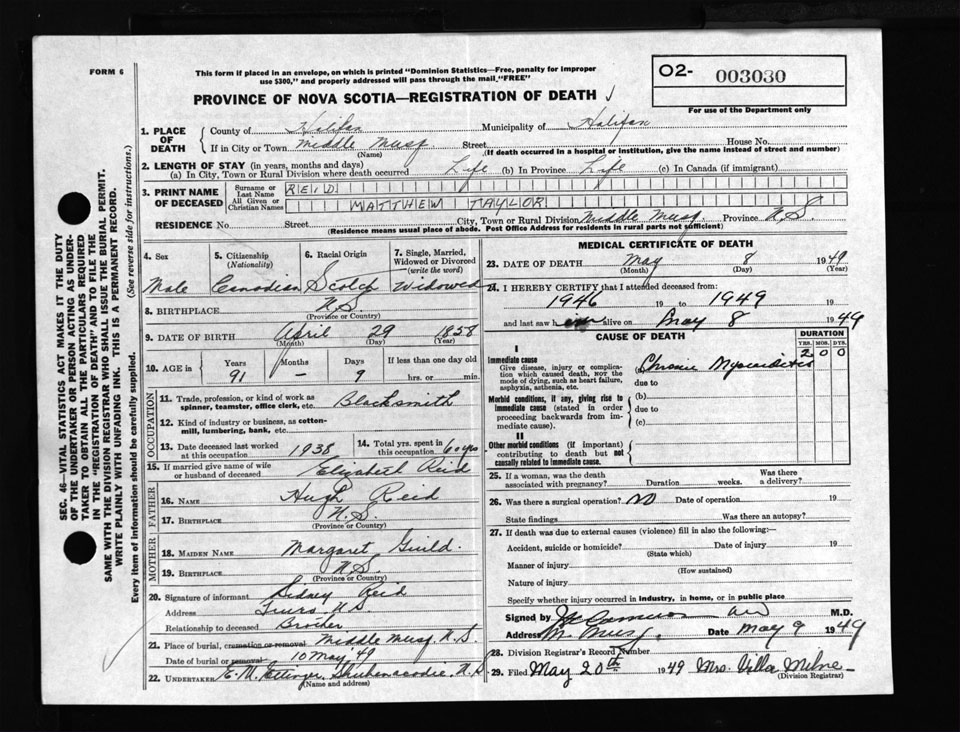 FORM 6
This form if placed in an envelope, on which is printed "Dominion Statistics—Free, penalty for improper
use $300," and properly addressed will pass through the mail "FREE"
O2- 003030
For use of the Department only
PROVINCE OF NOVA SCOTIA—REGISTRATION OF DEATH
1. PLACE OF DEATH
County of Halifax Municipality of Halifax
If in City or Town Middle Musq. Street House No.
(Name) (If death occurred in a hospital or institution, give the name instead of street and number)
2. LENGTH OF STAY (in years, months and days)
(a) In City, Town or Rural Division where death occurred Life (b) In Province Life (c) In Canada (if immigrant)
3. PRINT NAME OF DECEASED
Surname or Last Name REID
All Given or Christian Names MATTHEW TAYLOR
RESIDENCE No. Street City, Town or Rural Division Middle Musq. Province N.S.
(Residence means usual place of abode. Post Office Address for residents in rural parts not sufficient)
4. Sex 5. Citizenship (Nationality) 6. Racial Origin 7. Single, Married, Widowed or Divorced (write the word)
Male Canadian Scotch Widowed
8. BIRTHPLACE N.S.
(Province or Country)
9. DATE OF BIRTH April 29 1858
(Month) (Day) (Year)
10. AGE in Years Months Days If less than one day old
91 - 9 hrs. or min.
OCCUPATION
11. Trade, profession, or kind of work as spinner, teamster, office clerk, etc. Blacksmith
12. Kind of industry or business, as cotton-mill, lumbering, bank, etc.
13. Date deceased last worked at this occupation 1938
14. Total yrs. spent in this occupation 60 yrs
15. If married give name of wife or husband of deceased Elizabeth Reid
FATHER
16. NAME Hugh Reid
17. BIRTHPLACE N.S.
(Province or Country)
MOTHER
18. MAIDEN NAME Margaret Guild.
19. BIRTHPLACE N.S.
(Province or Country)
20. Signature of informant Sidney Reid
Address Truro N.S.
Relationship to deceased Brother
21. Place of burial, cremation or removal Middle Musq. N.S.
Date of burial or removal 10 May '49
22. UNDERTAKER E. M. Ettinger, Shubenacadie, N.S.
(Name and address)
MEDICAL CERTIFICATE OF DEATH
23. DATE OF DEATH May 8 1949
(Month) (Day) (Year)
24. I HEREBY CERTIFY that I attended deceased from:
1946 19 to 1949 19
and last saw him alive on May 8 1949
CAUSE OF DEATH DURATION
YRS. MOS. DYS.
I
Immediate cause
Give disease, injury or complication which caused death, NOT the mode of dying, such as heart failure, asphyxia, asthenia, etc.
(a) Chronic Myocarditis 2 0 0
due to
Morbid conditions, if any, giving rise to immediate cause (stated in order proceeding backwards from immediate cause).
(b)
due to
(c)
II
Other morbid conditions (if important) contributing to death but not causally related to immediate cause.
25. If a woman, was the death associated with pregnancy? Duration weeks. Was there a delivery?
26. Was there a surgical operation? No Date of operation 19
State findings Was there an autopsy?
27. If death was due to external causes (violence) fill in also the following:—
Accident, suicide or homicide? Date of injury 19
(State which)
Manner of injury
(How sustained)
Nature of injury
Specify whether injury occurred in industry, in home, or in public place
Signed by M.D.
Address M. Musq. Date May 9 1949
28. Division Registrar's Record Number
29. Filed May 20th 1949 Mrs. Villa Milne
(Division Registrar)
SEC. 46—VITAL STATISTICS ACT MAKES IT THE DUTY
OF THE UNDERTAKER OR PERSON ACTING AS UNDER-
TAKER TO OBTAIN ALL THE PARTICULARS REQUIRED
IN THE "REGISTRATION OF DEATH" AND TO FILE THE
SAME WITH THE DIVISION REGISTRAR WHO SHALL ISSUE THE BURIAL PERMIT.
WRITE PLAINLY WITH UNFADING INK. THIS IS A PERMANENT RECORD.
Every item of information should be carefully supplied. (See reverse side for instructions.)